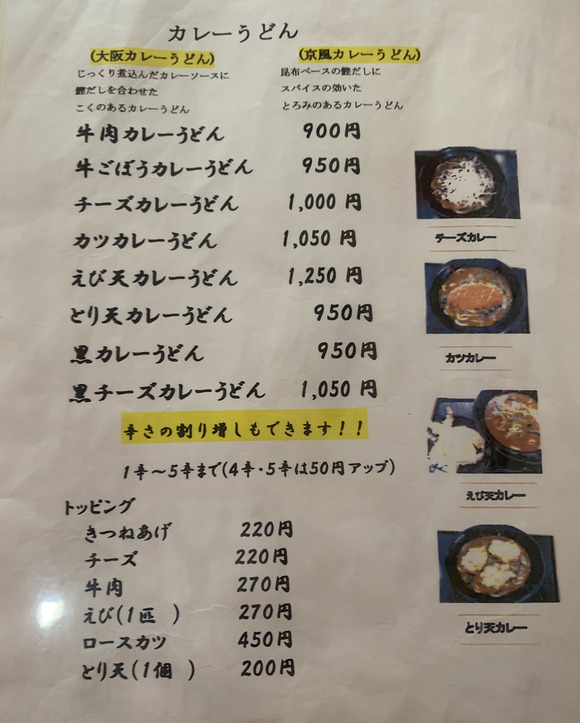 カレーうどん
(大阪カレーうどん) (京風カレーうどん)
じっくり煮込んだカレーソースに
鰹だしを合わせた
こくのあるカレーうどん
昆布ベースの鰹だしに
スパイスの効いた
とろみのあるカレーうどん
牛肉カレーうどん 900円
牛ごぼうカレーうどん 950円
チーズカレーうどん 1,000円
カツカレーうどん 1,050円
えび天カレーうどん 1,250円
とり天カレーうどん 950円
黒カレーうどん 950円
黒チーズカレーうどん 1,050円
チーズカレー
カツカレー
えび天カレー
とり天カレー
辛さの割り増しもできます!!
1辛～5辛まで(4辛・5辛は50円アップ)
トッピング
きつねあげ 220円
チーズ 220円
牛肉 270円
えび(1匹 ) 270円
ロースカツ 450円
とり天(1個 ) 200円